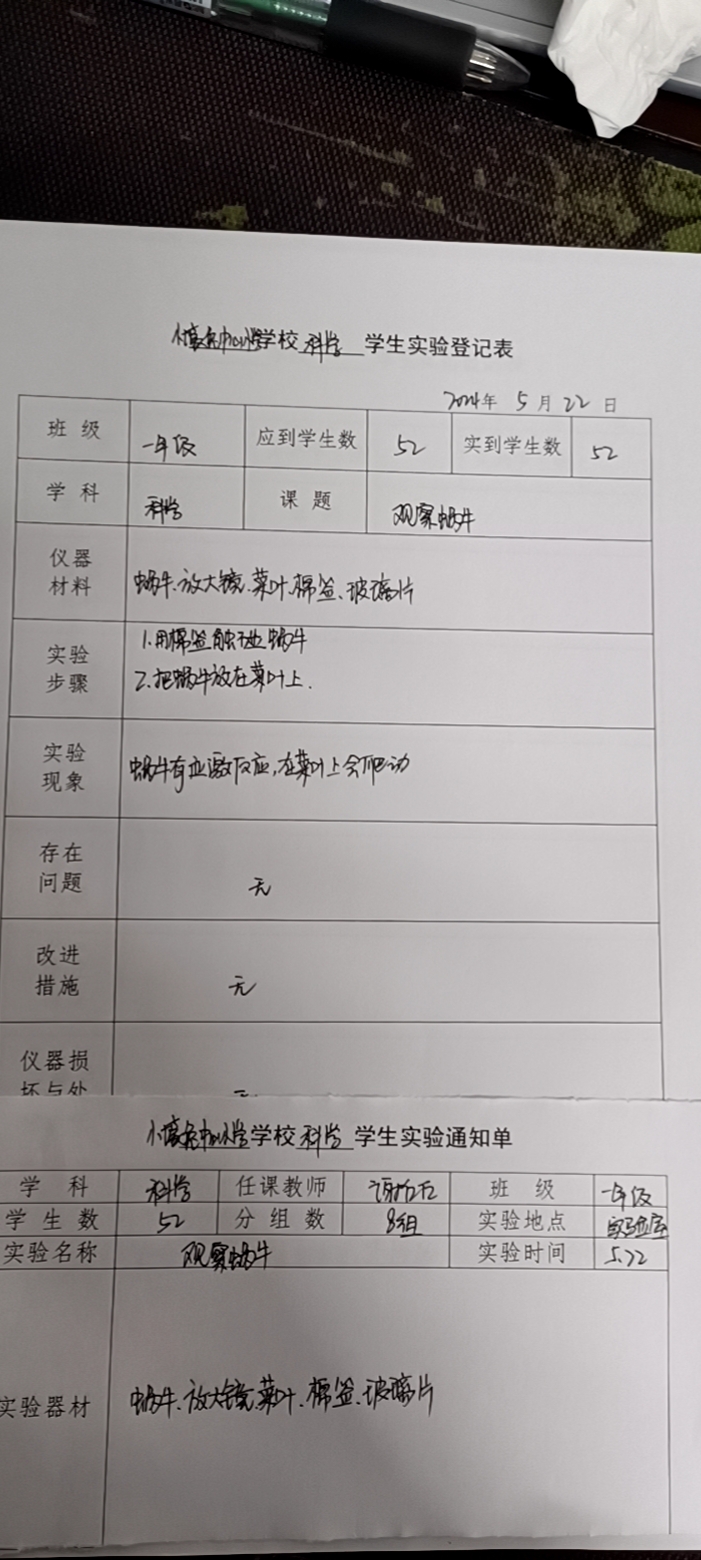 学校 科学 学生实验登记表
2024年 5月 22日
班级 一年级 应到学生数 52 实到学生数 52
学科 科学 课题 观察蜗牛
仪器
材料
蜗牛、放大镜、菜叶、棉签、玻璃片
实验
步骤
1.用棉签触碰蜗牛
2.把蜗牛放在菜叶上.
实验
现象
蜗牛有应激反应,在菜叶上会爬动
存在
问题
无
改进
措施
无
仪器损
坏与处
学校 科学 学生实验通知单
学科 科学 任课教师 班级 一年级
学生数 52 分组数 8组 实验地点 实验室
实验名称 观察蜗牛 实验时间 5.22
实验器材 蜗牛、放大镜、菜叶、棉签、玻璃片